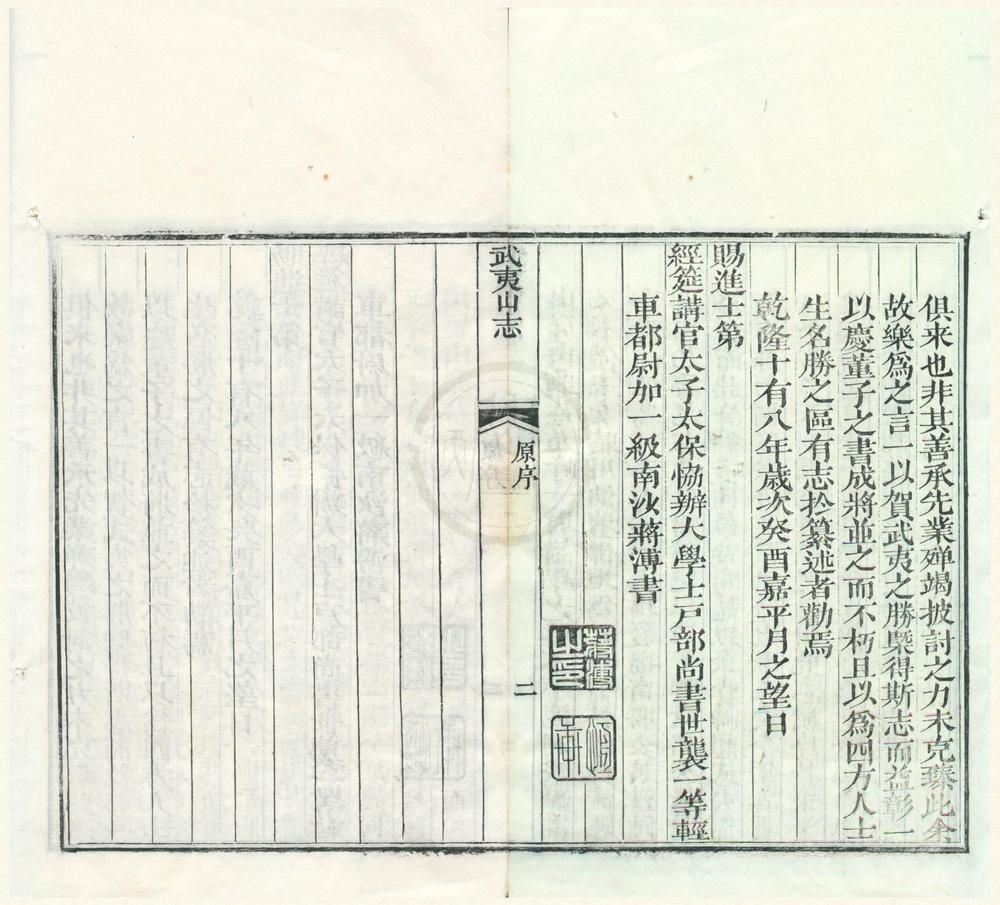 俱来也非其善承先業殫竭披討之力未克臻此余
故樂爲之言一以賀武夷之勝槩得斯志而益彰一
以慶董子之書成將並之而不朽且以爲四方人士
生名勝之區有志於纂述者勸焉
乾隆十有八年歲次癸酉嘉平月之望日
賜進士第
經筵講官太子太保恊辦大學士戸部尚書世襲一等輕
車都尉加一級南沙蔣溥書
蔣溥之印
武夷山志
原序
二